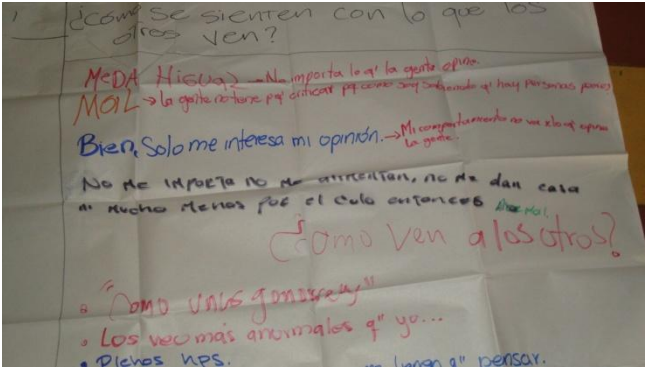 ¿como se sienten con lo que los
otros ven?
MeDA Higual → No importa lo q' la gente opine.
MAL → la gente no tiene pq' criticar pq como soy sabiendo q' hay personas peores
Bien, Solo me interesa mi opinión. → Mi comportamiento no va x lo q' opine
la gente.
No Me IMPORTA no Me alimentan, no Me dan casa
ni Mucho Menos por el culo entonces
¿Como ven a los otros?
• "Como unas gonorreas"
• Los veo más anormales q' yo...
• Dichos hps.
q" pensar.